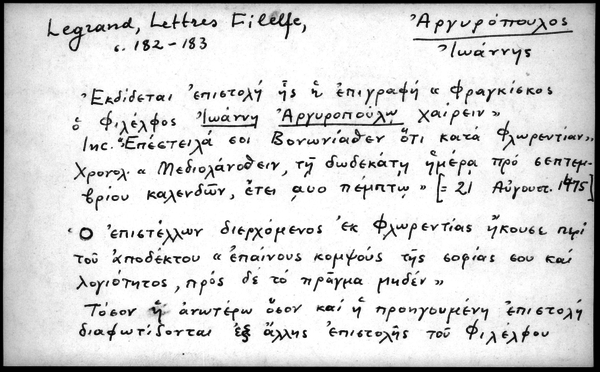 Legrand, Lettres Filelfe,
σ. 182-183
Ἀργυρόπουλος
Ἰωάννης
Ἐκδίδεται ἐπιστολή ἧς ἡ ἐπιγραφή « Φραγκίσκος
ὁ Φιλέλφος Ἰωάννῃ Ἀργυροπούλῳ χαίρειν »
Inc. "Ἐπέστειλά σοι Βονωνίαθεν ὅτι κατά Φλωρεντίαν",
Χρονολ. « Μεδιολάνοθειν, τῇ δωδεκάτῃ ἡμέρᾳ πρό σεπτεμ-
βρίου καλενδῶν, ἔτει ͵αυο πέμπτῳ » [= 21 Αὐγουστ. 1475]
Ὁ ἐπιστέλλων διερχόμενος ἐκ Φλωρεντίας ἤκουσε περί
τοῦ ἀποδέκτου « ἐπαίνους κομψούς τῆς σοφίας σου καί
λογιότητος, πρός δε τό πρᾶγμα μηδέν »
Τόσον ἡ ἀνωτέρω ὅσον καί ἡ προηγουμένη ἐπιστολή
διαφωτίδονται ἐξ ἄλλης ἐπιστολῆς τοῦ Φιλέλφου